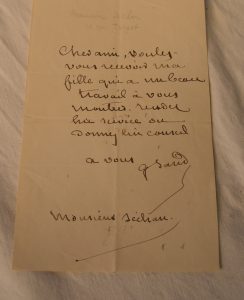 Cher ami, voulez
vous recevoir ma
fille qui a un beau
travail à vous
montrer. rendez
lui service ou
donnez lui conseil
à vous G Sand
Monsieur Séchan.